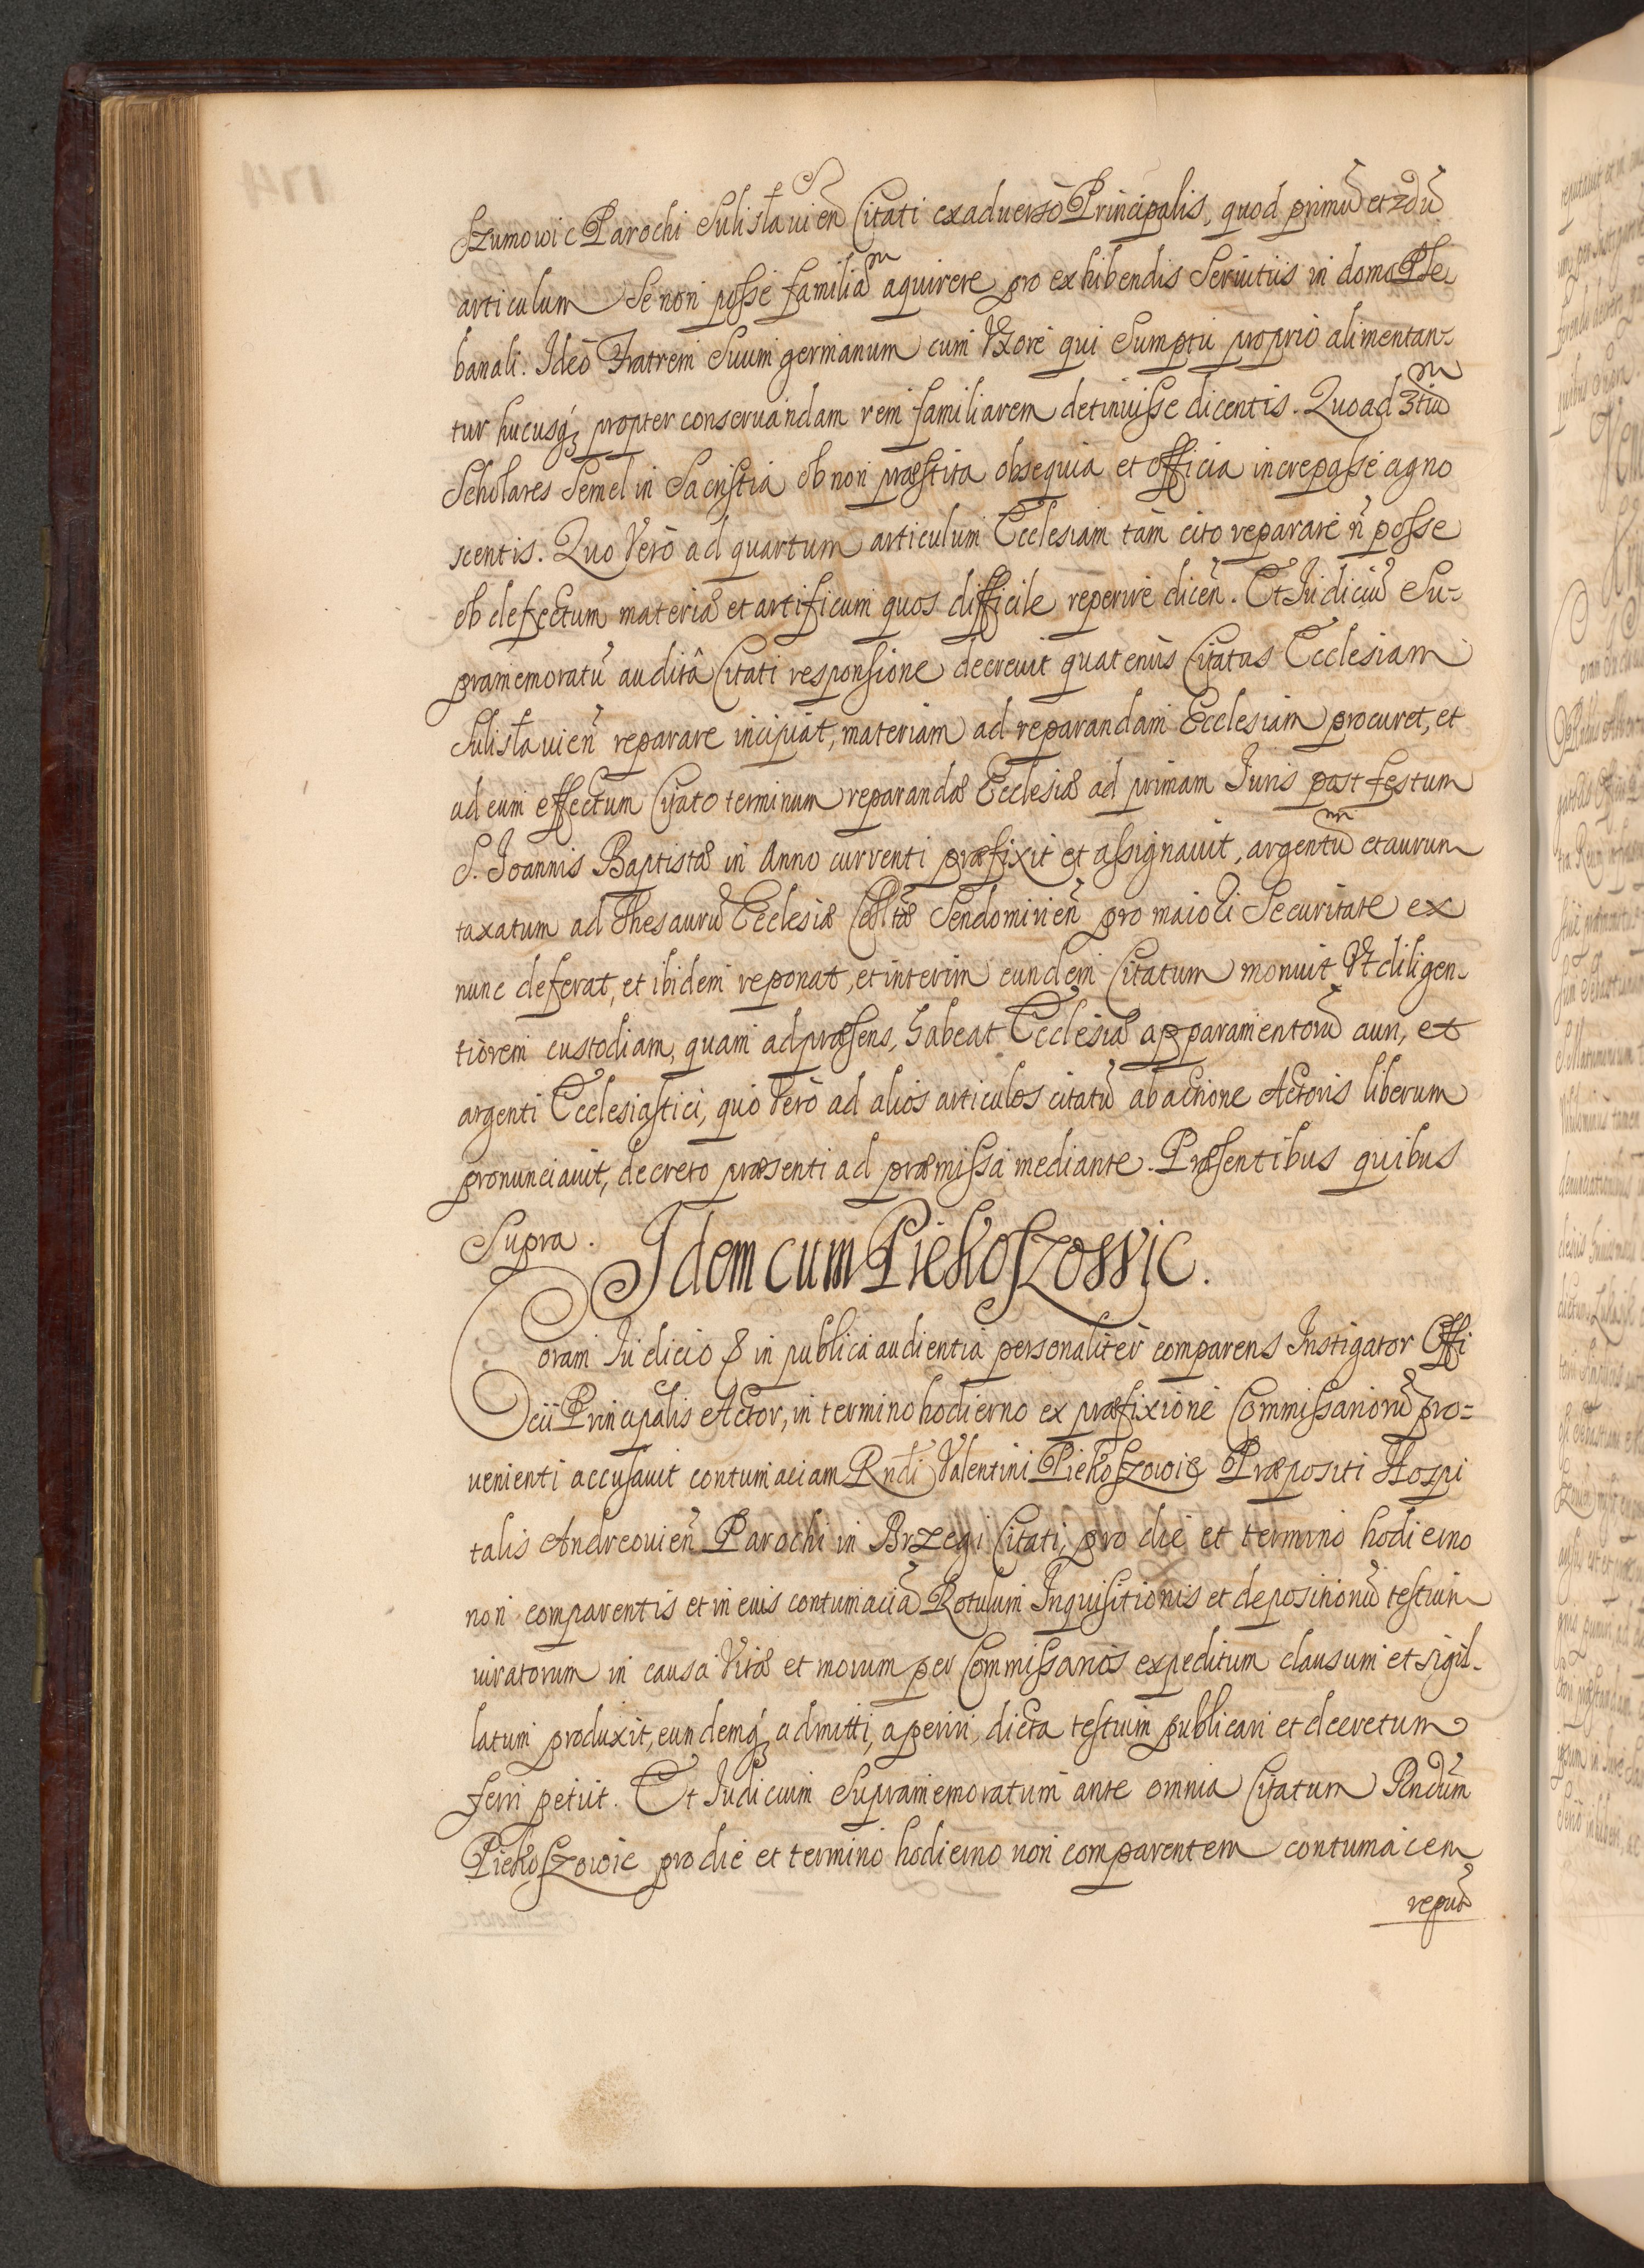 Szumowic Parochi Sulislauień Citati ex aduerso Principalis, quod primū et 2dū
articulum Se non posse familiam aquirere pro exhibendis Seruitiis in domo Ple-
banali. Ideo Fratrem Suum germanum cum Vxore qui Sumptu proprio alimentan-
tur hucusq; propter conseruandam rem familiarem detinuisse dicentis. Quoad 3tium
Scholares Semel in Sacristia ob non præstita obsequia et officia increpasse agno
scentis. Quo Vero ad quartum articulum Ecclesiam tam cito reparare ñ posse
ob defectum materiæ et artificum quos difficile reperire diceñ. Et Iudiciū Su-
pramemoratū auditâ Citati responsione decreuit quatenus Citatus Ecclesiam
Sulislauień reparare incipiat, materiam ad reparandam Ecclesiam procuret, et
ad eum effectum Citato terminum reparandæ Ecclesiæ ad primam Iuris post festum
S. Ioannis Baptistæ in Anno currenti præfixit et assignauit, argentum et aurum
taxatum ad Thesaurū Ecclesiæ Sendomirień pro maiori Securitate ex
nunc deferat, et ibidem reponat, et interim eundem Citatum monuit Vt diligen-
tiorem custodiam, quam ad præsens, habeat Ecclesiæ apparamentorū auri, et
argenti Ecclesiastici, quo Vero ad alios articulos citatū ab actione Actoris liberum
pronunciauit, decreto præsenti ad præmissa mediante. Præsentibus quibus
Supra.
Idem cum Piekoszowic.
Coram Iudicio & in publica audientia personaliter comparens Instigator Offi
cii Principalis Actor, in termino hodierno ex præfixione Commissariorū pro=
uenienti accusauit contumaciam Rndi Valentini Piekoszowic Præpositi Hospi
talis Andreouień Parochi in Brzegi Citati, pro die et termino hodierno
non comparentis et in eius contumaciā Rotulum Inquisitionis et depositionū testium
iuratorum in causa Vitæ et morum per Commissarios expeditum clausum et sigil-
latum produxit, eundemq; admitti, aperiri, dicta testium publicari et decretum
ferri petiit. Et Iudicium Supramemoratum ante omnia Citatum Rndum
Piekoszowic pro die et termino hodierno non comparentem contumacem
reputa